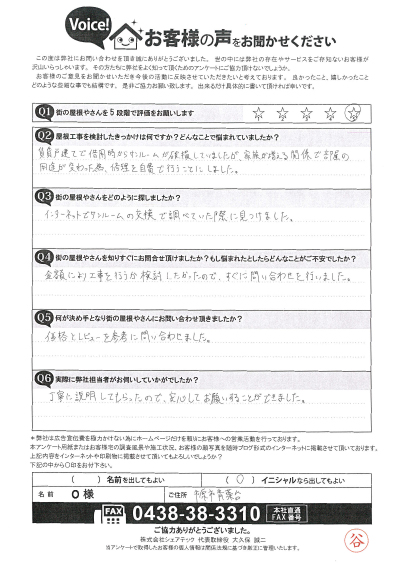 Voice!
お客様の声をお聞かせください
この度は弊社にお問い合わせを頂き誠にありがとうございました。世の中には弊社の存在やサービスをご存知ないお客様が
沢山いらっしゃいます。その方たちに弊社をよく知って頂くためのアンケートにご協力頂けないでしょうか。
お客様のご意見をお聞かせいただき今後の活動に反映させていただきたいと考えております。良かったこと、嬉しかったこと
どのような些細な事でも結構です。是非ご協力お願い致します。出来るだけ具体的に書いて頂ければ幸いです。
Q1 街の屋根やさんを5段階で評価をお願いします
☆ ☆ ☆ ☆ ☆
Q2 屋根工事を検討したきっかけは何ですか？どんなことで悩まれていましたか？
賃貸戸建てで借用時からサンルームが破損していましたが、家族が増える関係で部屋の
用途が変わった為、修理を自費で行うことにしました。
Q3 街の屋根やさんをどのように探しましたか？
インターネットでサンルームの交換で調べていた際に見つけました。
Q4 街の屋根やさんを知りすぐにお問合せ頂けましたか？もし悩まれたとしたらどんなことがご不安でしたか？
金額により工事を行うか検討したかったので、すぐに問い合わせを行いました。
Q5 何が決め手となり街の屋根やさんにお問い合わせ頂きましたか？
価格とレビューを参考に問い合わせました。
Q6 実際に弊社担当者がお伺いしていかがでしたか？
丁寧に説明してもらったので、安心してお願いすることができました。
＊弊社は広告宣伝費を極力かけない為にホームページだけを頼りにお客様への営業活動を行っております。
本アンケート用紙またはお客様宅の調査風景や施工状況、お客様の顔写真を随時ブログ形式のインターネットに掲載させて頂いております。
上記内容をインターネットや印刷物に掲載させて頂いてもよろしいでしょうか？
下記の中から○印をお付下さい。
( ) 名前を出してもよい ( ○ ) イニシャルなら出してもよい
名前 O様 ご住所 市原市青葉台
FAX 0438-38-3310 本社直通 FAX番号
ご協力ありがとうございました。
株式会社シェアテック 代表取締役 大久保 誠二
※アンケートで取得したお客様の個人情報は関係法規に基づき厳正に管理いたします。
谷